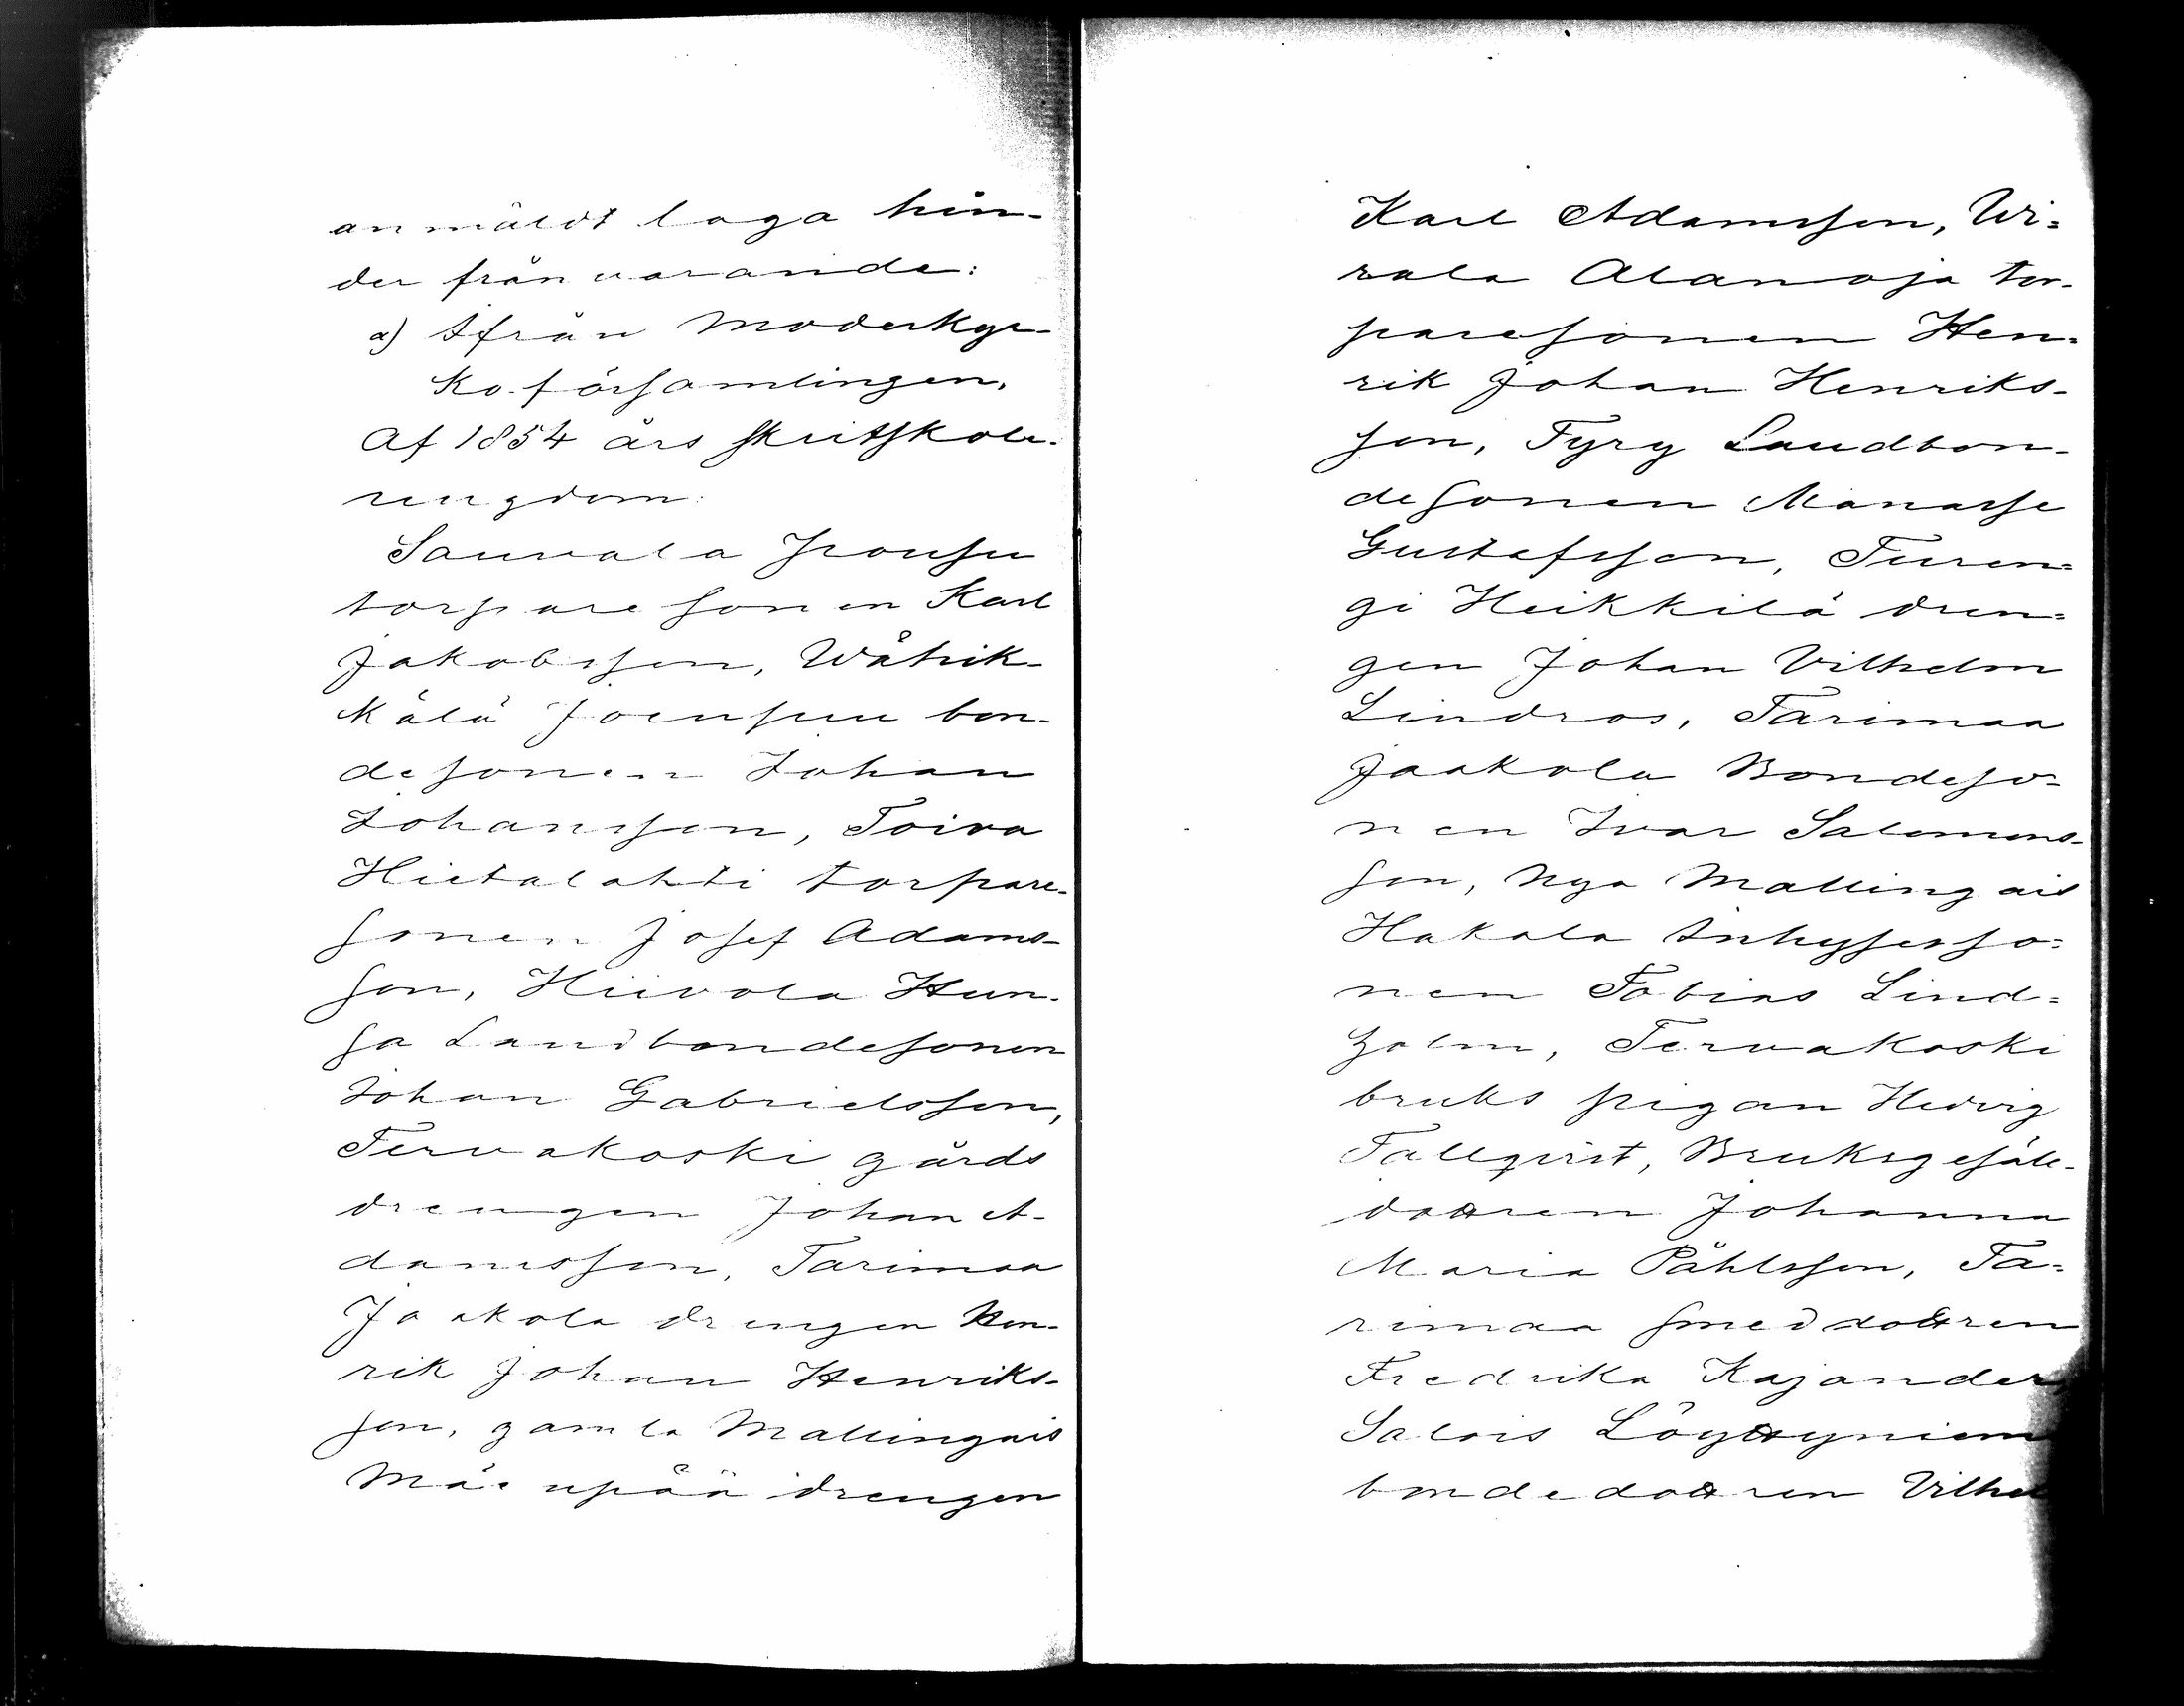 anmäldt laga hin-
der från varande:
a) Ifrån Moderkyr-
ko församlingen.
Af 1854 års skriftskole-
ungdom:
Sauvala Jpousu
torparesonen Karl
Jakobsson, Wåhik-
kälä Joensuu bon-
desonen Johan
Johansson, Toiva
Hietalahti torpare-
sonen Josef Adams-
son, Hiivola Hun-
sa Landbondesonen
Johan Gabrielsson,
Tervakoski gårds
drengen Johan A-
damsson, Tarimaa
Jaakola drengen Hen-
rik Johan Henriks-
son, gamla Mallingais
Mäenpää drengen
Karl Adamsson, Wi=
rala Alanoja tor-
paresonen Hen=
rik Johan Henriks-
son, Tyry Landbon-
desonen Manasse
Gustafsson, Turen=
gi Heikkilä dren=
gen Johan Vilhelm
Lindros, Tarimaa
Jaakola Bondeso=
nen Ivar Salomons-
son, Nya Mallingais
Hakala Inhysesso=
nen Tobias Lind=
holm, Tervakoski
bruks pigan Hedvig
Tallqvist, Bruksgesäll-
dottren Johanna
Maria Påhlsson, Ta=
rimaa smeddottren
Fredrika Kajander,
Salois Löyttyniem
bondedottren Vilhel